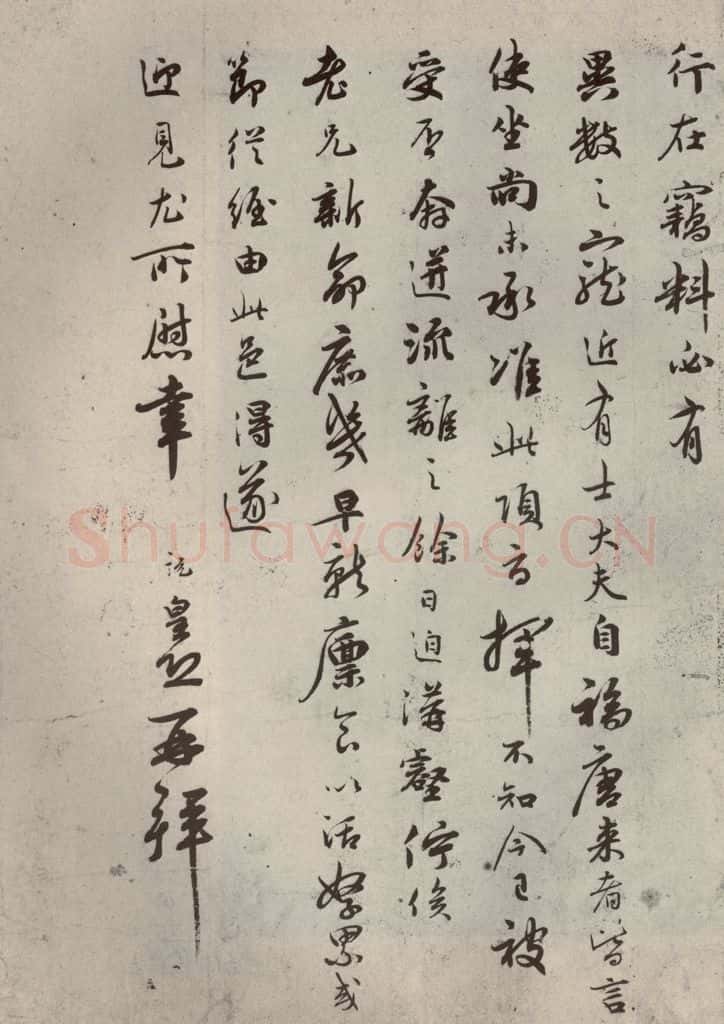 行在竊料必有
異數之寵近有士大夫自福唐来者皆言
使坐尚未承准此項指揮不知今已被
受否奔迸流離之餘日迫溝壑佇俟
老兄新命庶幾早就廪食以活孥累或
節從經由此邑得遂
迎見尤所慰幸 皇恐再拜
Shufawang.CN